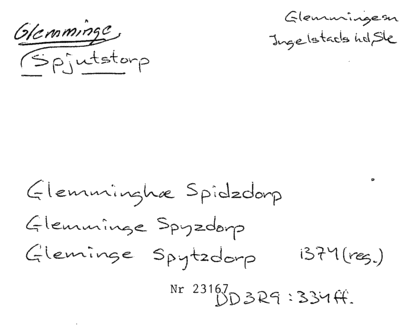 Glemminge
Spjutstorp
Glemmingesn
Ingelstads hd, Sk
Glemminghæ Spidzdorp
Glemminge Spyzdorp
Gleminge Spytzdorp 1374 (reg.)
Nr 23167
DD3R9:334ff.